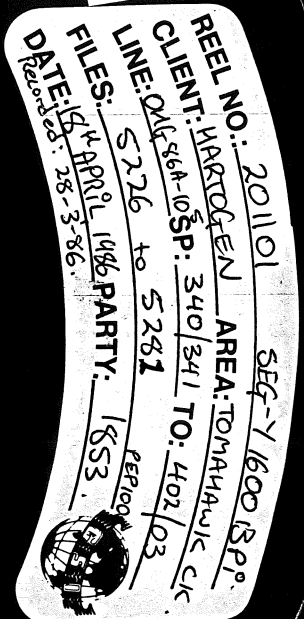 REEL NO.: 201101 SEG-Y 1600 BPI.
CLIENT: HARTOGEN AREA: TOMAHAWK CK.
LINE: OHG86A-105 SP: 340/341 TO: 402/03
FILES: 5226 to 5281
DATE: 18TH APRIL 1986 PARTY: 1853.
Recorded: 28-3-86.